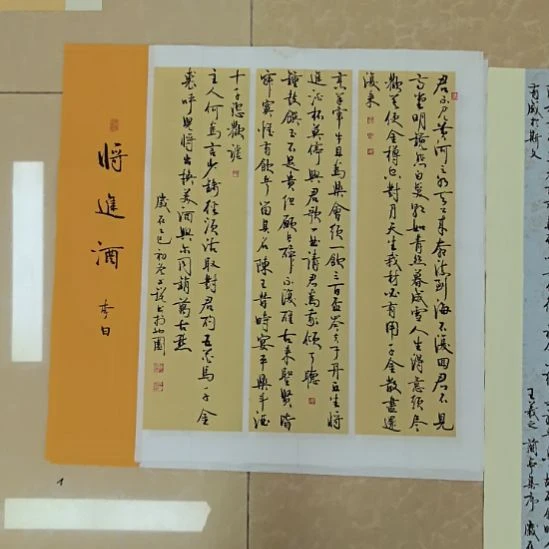 君不見黃河之水天上來奔流到海不復回君不見
高堂明鏡悲白髮朝如青絲暮成雪人生得意須盡
歡莫使金樽空對月天生我材必有用千金散盡還
復來
烹羊宰牛且為樂會須一飲三百盃岑夫子丹丘生將
進酒杯莫停與君歌一曲請君為我傾耳聽
鐘鼓饌玉不足貴但願長醉不復醒古來聖賢皆
寂寞惟有飲者留其名陳王昔時宴平樂斗酒
十千恣歡謔
主人何為言少錢徑須沽取對君酌五花馬千金
裘呼兒將出換美酒與尔同銷萬古愁
歲在乙巳初冬
將進酒
李白
有感於斯文
王羲之蘭亭集序歲在